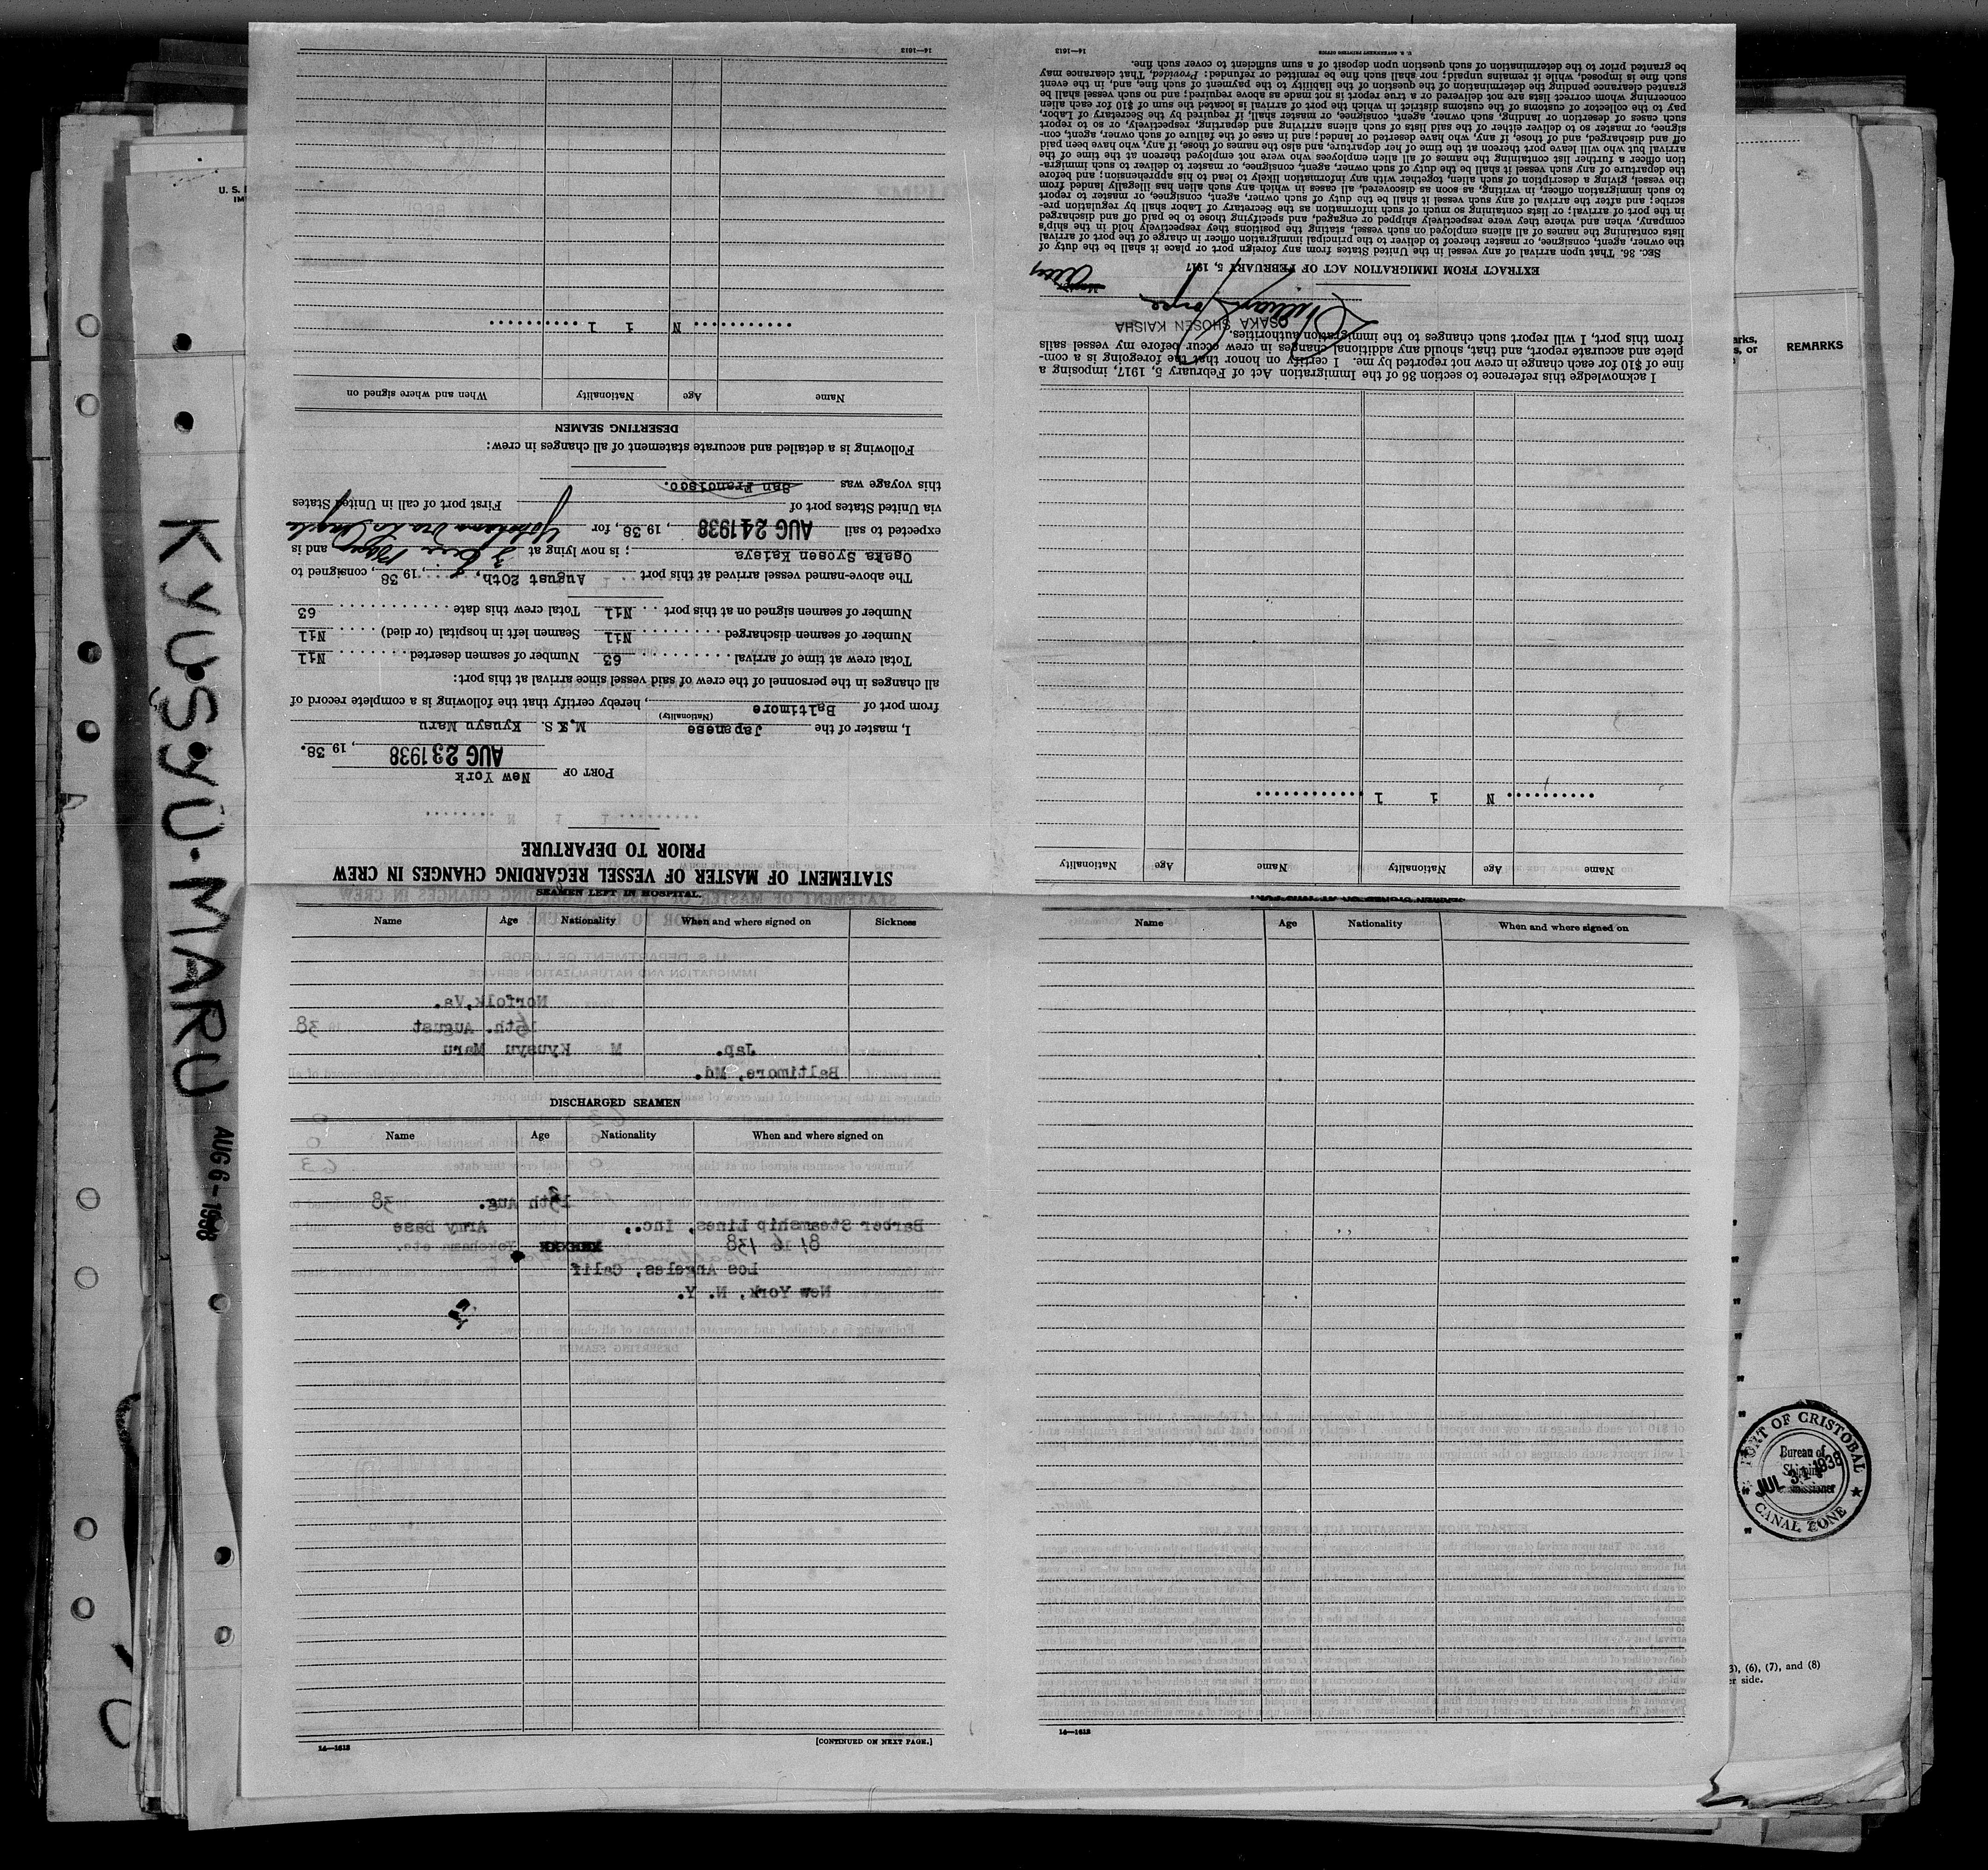 KYUSYU・MARU
AUG 6 - 1938
U. S.
REMARKS
STATEMENT OF MASTER OF VESSEL REGARDING CHANGES IN CREW
PRIOR TO DEPARTURE
PORT OF New York
AUG 23 1938, 19 38.
I, master of the Japanese M.S. Kyusyu Maru
(Nationality)
from port of Baltimore, hereby certify that the following is a complete record of
all changes in the personnel of the crew of said vessel since arrival at this port:
Total crew at time of arrival 63 Number of seamen deserted Nil
Number of seamen discharged Nil Seamen left in hospital (or died) Nil
Number of seamen signed on at this port Nil Total crew this date 63
The above-named vessel arrived at this port August 20th, 19 38, consigned to
Osaka Syosen Kaisya; is now lying at and is
expected to sail AUG 24 1938, 19 38, for Yokohama
via United States port of First port of call in United States
this voyage was San Francisco.
Following is a detailed and accurate statement of all changes in crew:
DESERTING SEAMEN
Name Age Nationality When and where signed on
N i l
14—1613
Name Age Nationality Name Age Nationality
N i l
I acknowledge this reference to section 36 of the Immigration Act of February 5, 1917, imposing a
fine of $10 for each change in crew not reported by me. I certify on honor that the foregoing is a com-
plete and accurate report, and that, should any additional changes in crew occur before my vessel sails
from this port, I will report such changes to the immigration authorities.
OSAKA SHOSEN KAISHA
Master
EXTRACT FROM IMMIGRATION ACT OF FEBRUARY 5, 1917
SEC. 36. That upon arrival of any vessel in the United States from any foreign port or place it shall be the duty of
the owner, agent, consignee, or master thereof to deliver to the principal immigration officer in charge of the port of arrival
lists containing the names of all aliens employed on such vessel, stating the positions they respectively hold in the ship's
company, when and where they were respectively shipped or engaged, and specifying those to be paid off and discharged
in the port of arrival; or lists containing so much of such information as the Secretary of Labor shall by regulation pre-
scribe; and after the arrival of any such vessel it shall be the duty of such owner, agent, consignee, or master to report
to such immigration officer, in writing, as soon as discovered, all cases in which any such alien has illegally landed from
the vessel, giving a description of such alien, together with any information likely to lead to his apprehension; and before
the departure of any such vessel it shall be the duty of such owner, agent, consignee, or master to deliver to such immigra-
tion officer a further list containing the names of all alien employees who were not employed thereon at the time of the
arrival but who will leave port thereon at the time of her departure, and also the names of those, if any, who have been paid
off and discharged, and of those, if any, who have deserted or landed; and in case of the failure of such owner, agent, con-
signee, or master so to deliver either of the said lists of such aliens arriving and departing, respectively, or so to report
such cases of desertion or landing, such owner, agent, consignee, or master shall, if required by the Secretary of Labor,
pay to the collector of customs of the customs district in which the port of arrival is located the sum of $10 for each alien
concerning whom correct lists are not delivered or a true report is not made as above required; and no such vessel shall be
granted clearance pending the determination of the question of the liability to the payment of such fine, and, in the event
such fine is imposed, while it remains unpaid; nor shall such fine be remitted or refunded: Provided, That clearance may
be granted prior to the determination of such question upon deposit of a sum sufficient to cover such fine.
U. S. GOVERNMENT PRINTING OFFICE 14—1613
SEAMEN LEFT IN HOSPITAL.
Name Age Nationality When and where signed on Sickness
Norfolk, Va.
16th. August 38
Jap. M Kyusyu Maru
Baltimore, Md.
DISCHARGED SEAMEN
Name Age Nationality When and where signed on
15th Aug. 38
Barber Steamship Lines, Inc., Army Base
8/ 16 /38 Yokohama etc.
Los Angeles, Calif
New York, N. Y.
14—1613 [CONTINUED ON NEXT PAGE.]
Name Age Nationality When and where signed on
14—1613
PORT OF CRISTOBAL
Bureau of
Shipping
JUL 31 1938
Commissioner
CANAL ZONE
(6), (7), and (8)
side.